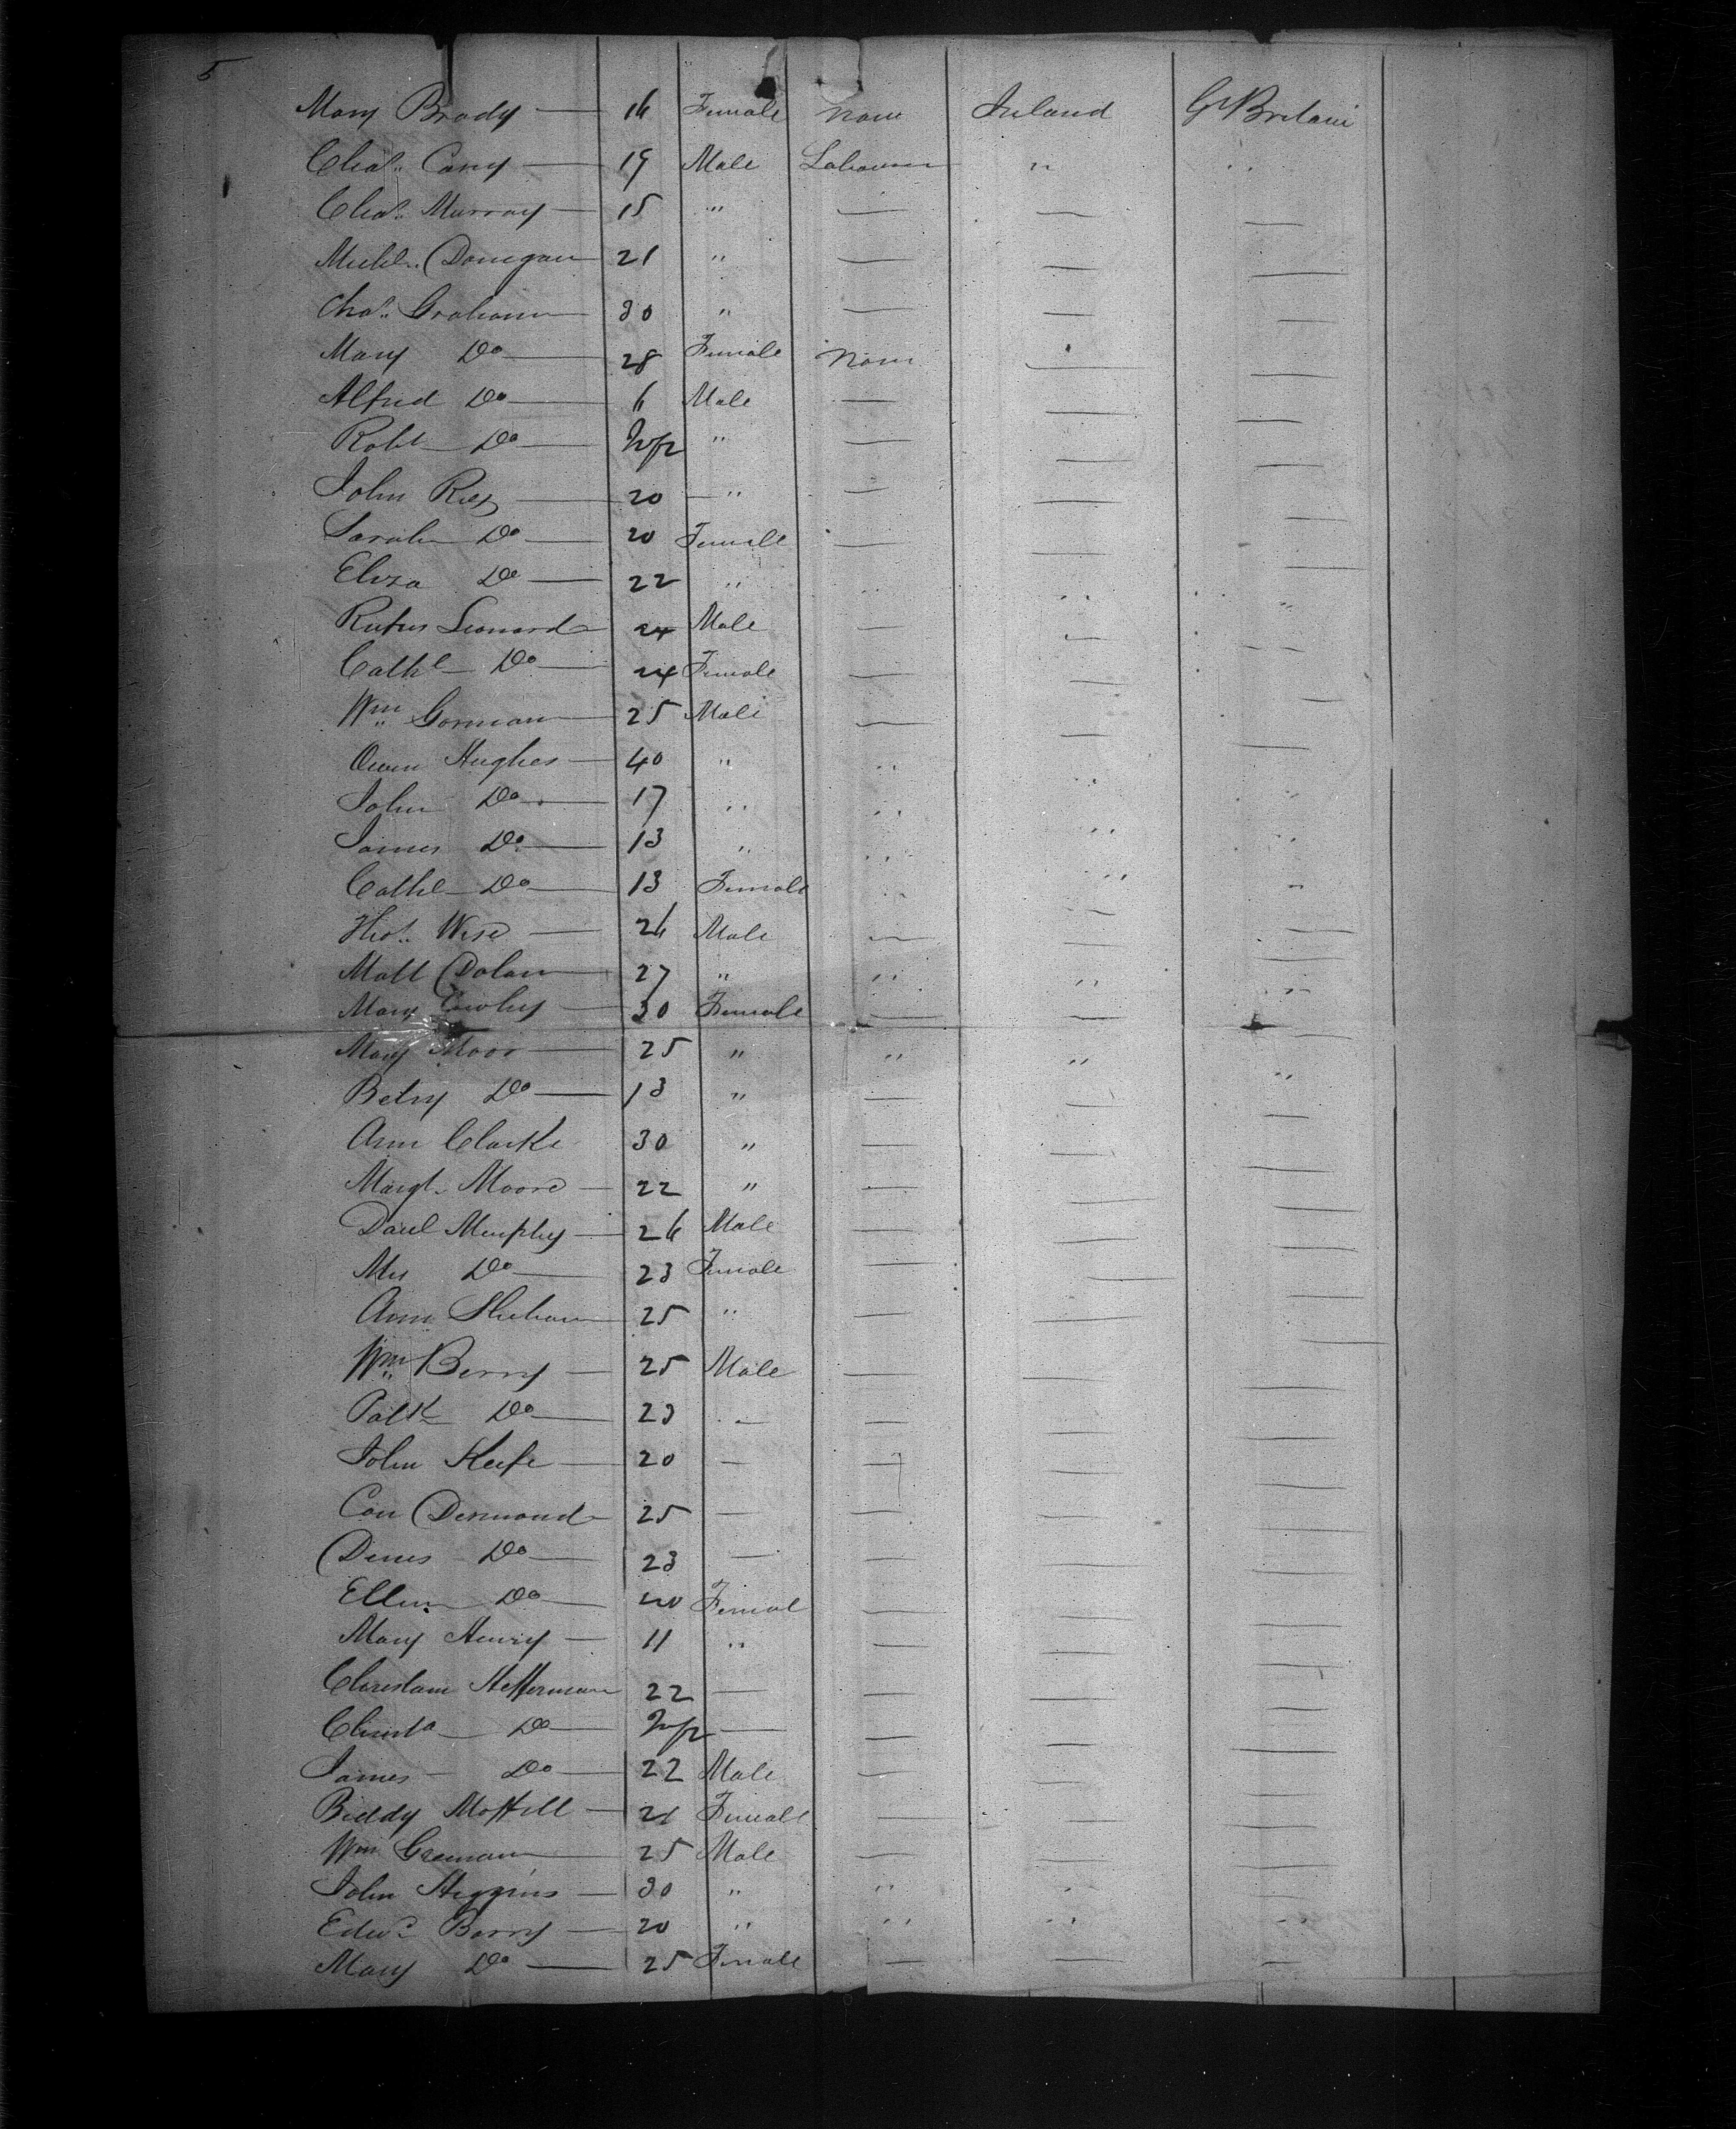 5
Mary Brady — 16 Female None Ireland Gt Britain
Chas. Carry — 19 Male Labourer " "
Chas. Murray — 15 " — — —
Michl. Donegan — 21 " — — —
Chas. Graham — 30 " — — —
Mary Do — 28 Female None — —
Alfred Do — 6 Male — — —
Robt Do — Inft " — — —
John — 20 — " — — —
Sarah Do — 20 Female — — —
Eliza Do — 22 " " " "
Rufus Leonard — 24 Male — — —
Cathe Do — 24 Female — — —
Wm Gorman — 25 Male — — —
Owen Hughes — 40 " " " "
John Do — 17 " " " "
James Do — 13 " " " "
Cathe Do — 13 Female " " "
Thos. Wise — 26 Male — — —
Matt Dolan — 27 " " " "
Mary — 30 Female — — —
Mary Moor — 25 " " " "
Betsy Do — 13 " — — —
Ann Clarke 30 " — — —
Margt. Moore — 22 " — — —
Danl Murphy — 26 Male — — —
Mrs Do — 23 Female — — —
Ann Shehan — 25 " — — —
Wm Berry — 25 Male — — —
Patk Do — 23 — — — —
John Keefe — 20 — — — —
Con Desmond — 25 — — — —
Denis Do — 23 — — — —
Ellen Do — 20 Femal — — —
Mary Henry — 11 " — — —
Heffernan 22 — — — —
Do — Inft — — — —
James — Do — 22 Male — — —
Biddy — 21 Female — — —
Wm — 25 Male — — —
John Higgins — 30 " " " —
Edwd. Barry — 20 " " " "
Mary Do — 25 Female — — —